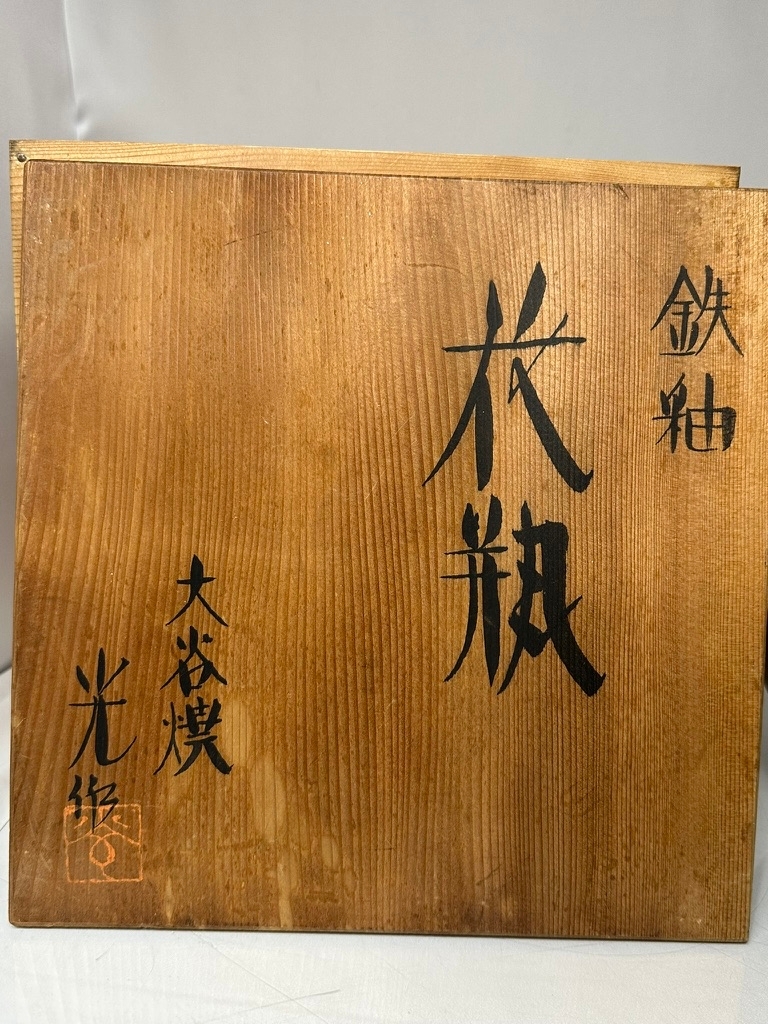 鉄釉
花瓶
大谷焼
光作